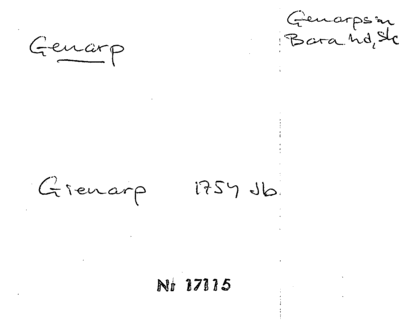 Genarp
Genarps sn
Bara hd, Sk
Gienarp 1754 Jb
Nr 17115